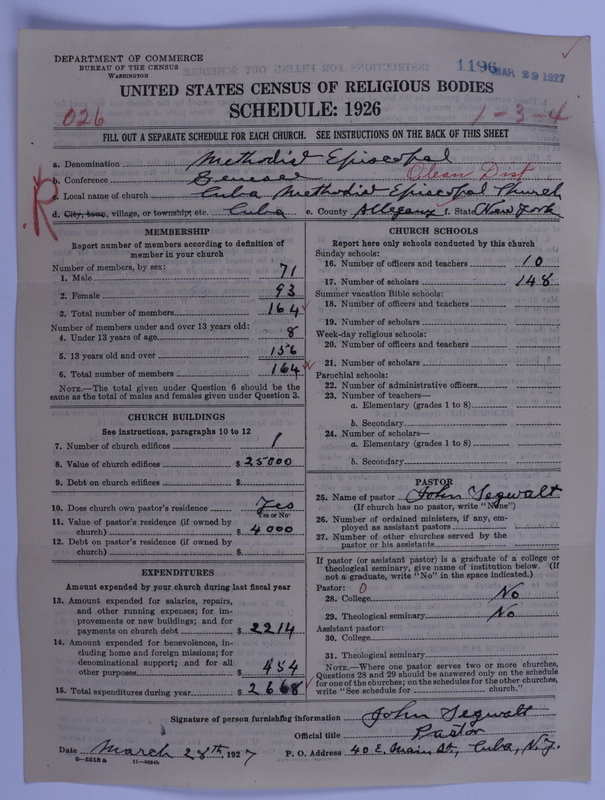 DEPARTMENT OF COMMERCE
BUREAU OF THE CENSUS
WASHINGTON
1196 MAR 29 1927
UNITED STATES CENSUS OF RELIGIOUS BODIES
SCHEDULE: 1926
026
1-3-4
FILL OUT A SEPARATE SCHEDULE FOR EACH CHURCH. SEE INSTRUCTIONS ON THE BACK OF THIS SHEET
a. Denomination Methodist Episcopal
b. Conference Genesee Olean Dist
c. Local name of church Cuba Methodist Episcopal Church
d. City, town, village, or township, etc. Cuba e. County Allegany f. State New York
R
MEMBERSHIP
Report number of members according to definition of
member in your church
Number of members, by sex:
1. Male 71
2. Female 93
3. Total number of members 164
Number of members under and over 13 years old:
4. Under 13 years of age 8
5. 13 years old and over 156
6. Total number of members 164
NOTE.—The total given under Question 6 should be the
same as the total of males and females given under Question 3.
CHURCH BUILDINGS
See instructions, paragraphs 10 to 12
7. Number of church edifices 1
8. Value of church edifices $ 25000
9. Debt on church edifices $
10. Does church own pastor's residence Yes
Yes or No
11. Value of pastor's residence (if owned by
church) $ 4000
12. Debt on pastor's residence (if owned by
church) $
EXPENDITURES
Amount expended by your church during last fiscal year
13. Amount expended for salaries, repairs,
and other running expenses; for im-
provements or new buildings; and for
payments on church debt $ 2214
14. Amount expended for benevolences, in-
cluding home and foreign missions; for
denominational support; and for all
other purposes $ 454
15. Total expenditures during year $ 2668
CHURCH SCHOOLS
Report here only schools conducted by this church
Sunday schools:
16. Number of officers and teachers 10
17. Number of scholars 148
Summer vacation Bible schools:
18. Number of officers and teachers
19. Number of scholars
Week-day religious schools:
20. Number of officers and teachers
21. Number of scholars
Parochial schools:
22. Number of administrative officers
23. Number of teachers—
a. Elementary (grades 1 to 8)
b. Secondary
24. Number of scholars—
a. Elementary (grades 1 to 8)
b. Secondary
PASTOR
25. Name of pastor John Segwalt
(If church has no pastor, write "None")
26. Number of ordained ministers, if any, em-
ployed as assistant pastors
27. Number of other churches served by the
pastor or his assistants
If pastor (or assistant pastor) is a graduate of a college or
theological seminary, give name of institution below. (If
not a graduate, write "No" in the space indicated.)
Pastor: 0
28. College No
29. Theological seminary No
Assistant pastor:
30. College
31. Theological seminary
NOTE.—Where one pastor serves two or more churches,
Questions 28 and 29 should be answered only on the schedule
for one of the churches; on the schedules for the other churches,
write "See schedule for church."
Signature of person furnishing information John Segwalt
Official title Pastor
Date March 28th, 1927 P. O. Address 40 E. Main St., Cuba, N.Y.